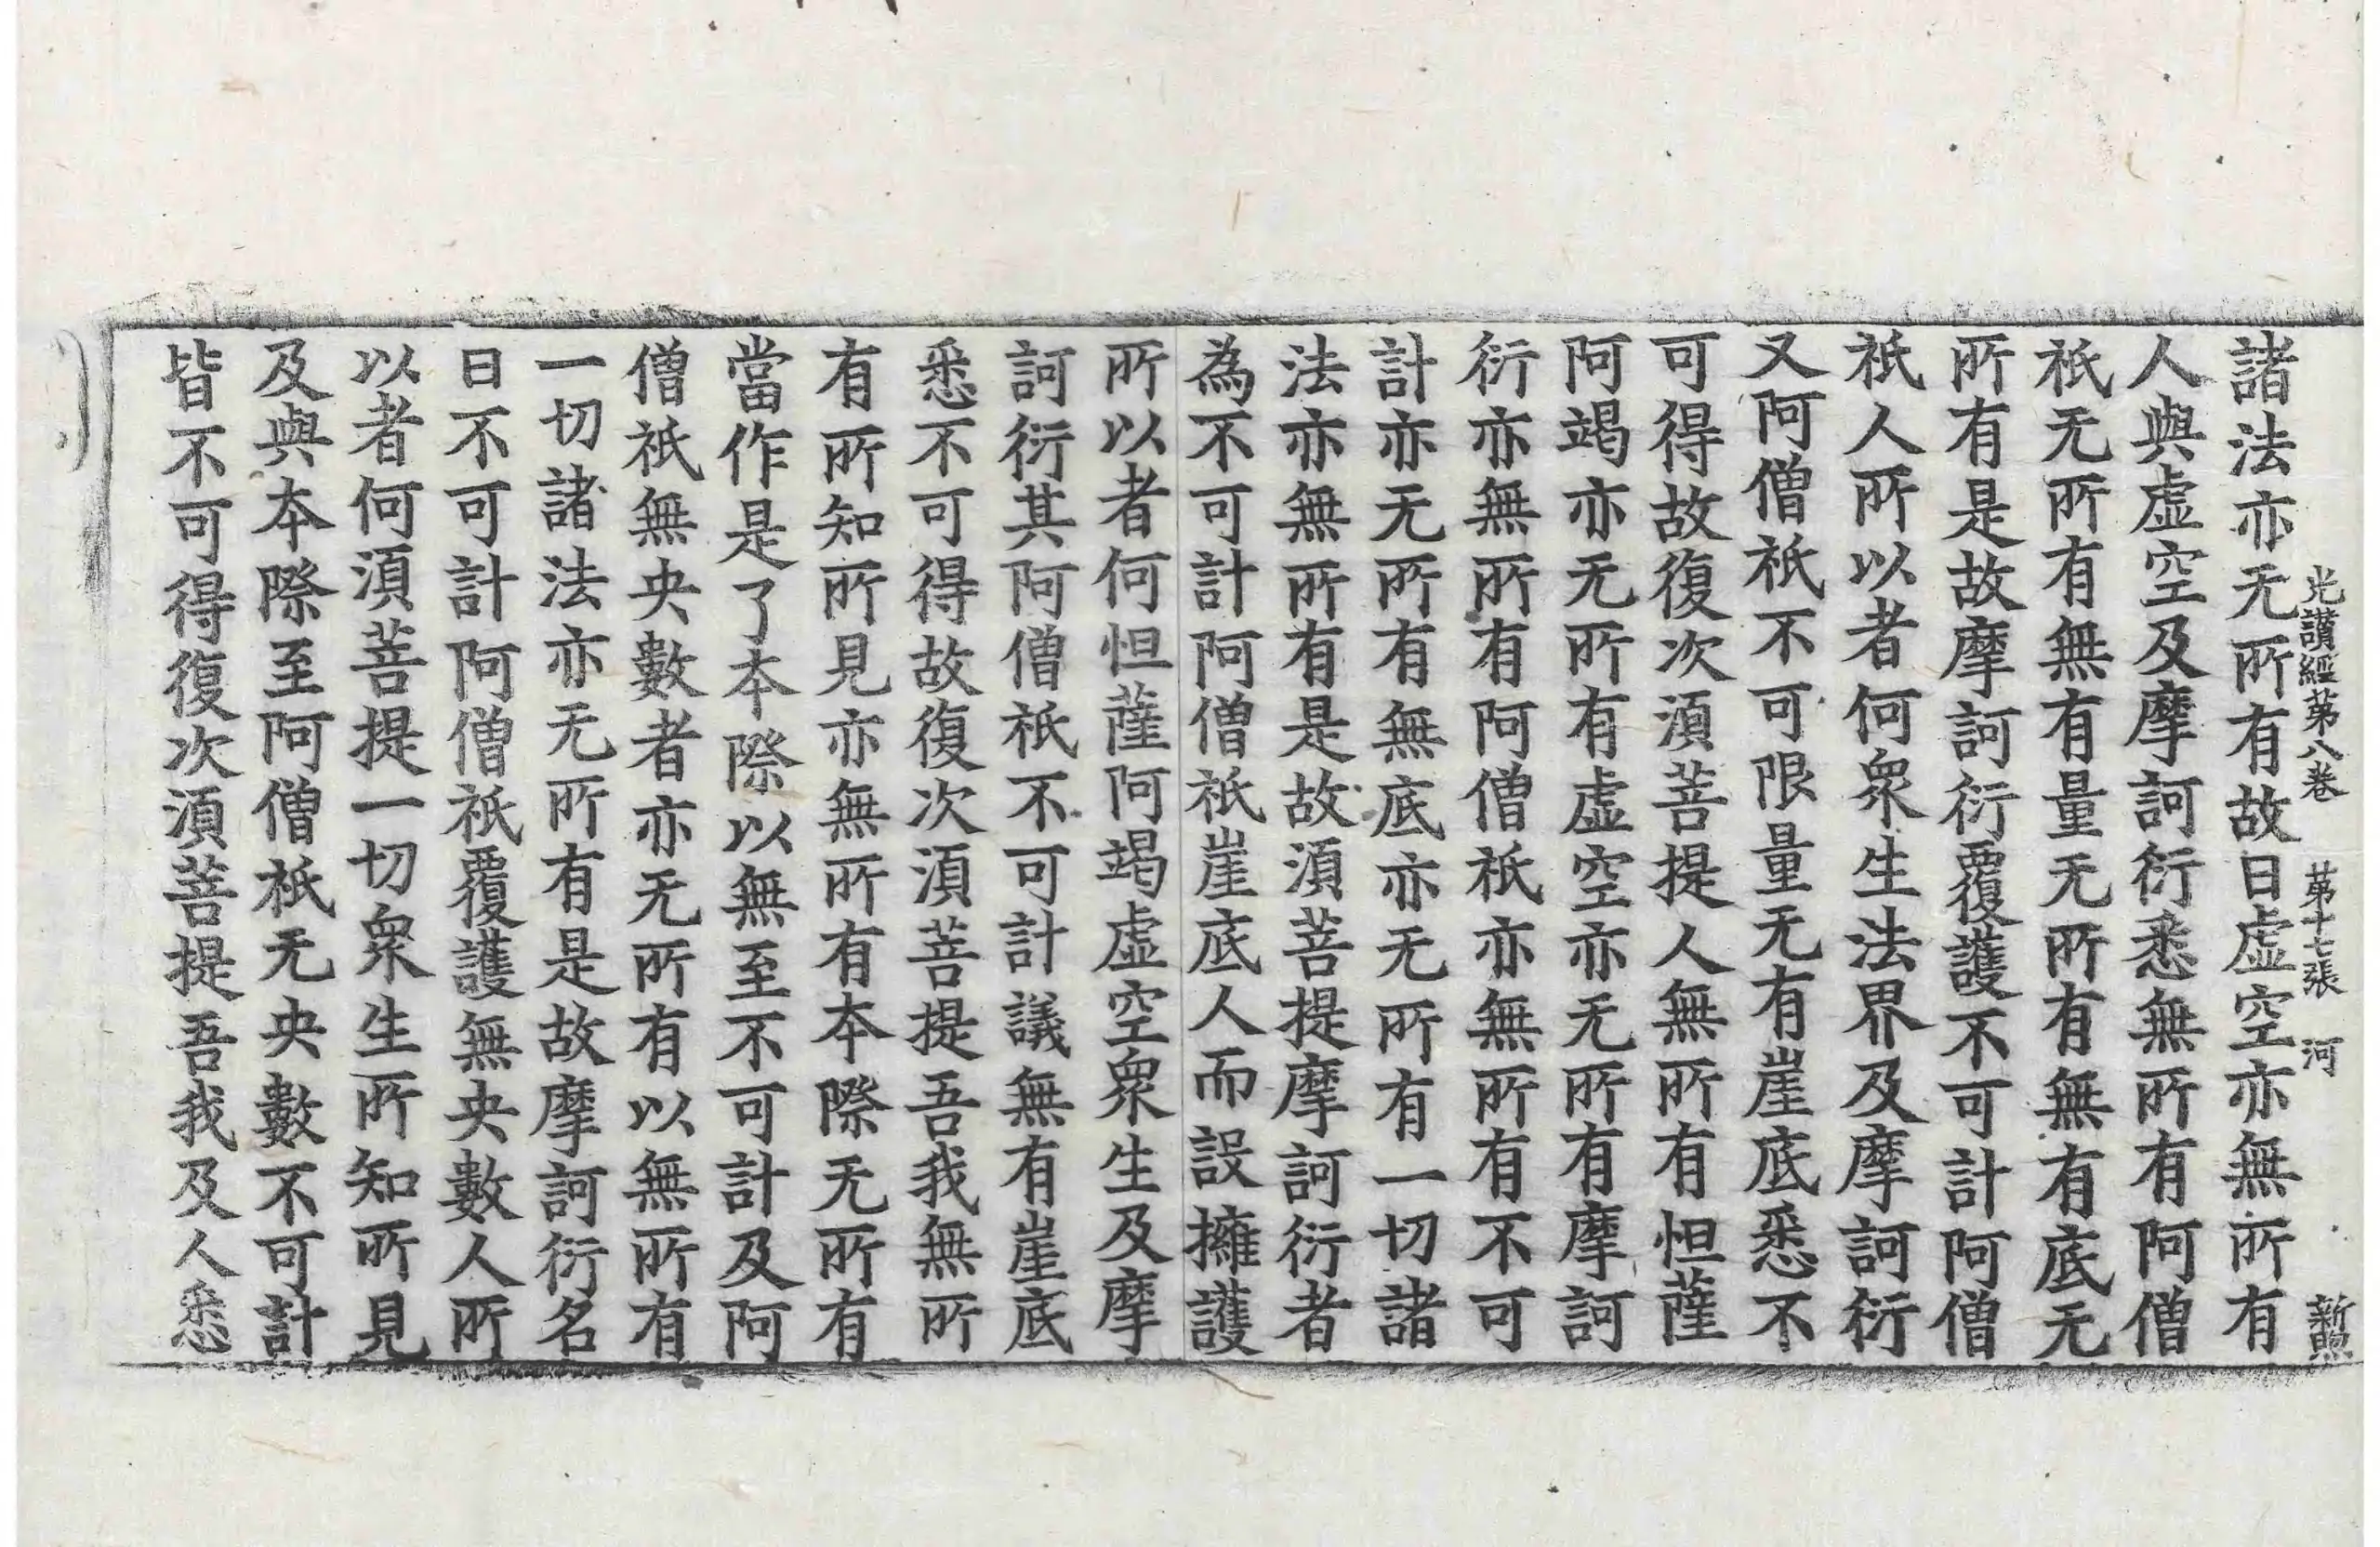 光讚經第八卷　第十七張　河　新照
諸法亦无所有故曰虛空亦無所有
人與虛空及摩訶衍悉無所有阿僧
祇无所有無有量无所有無有底无
所有是故摩訶衍覆護不可計阿僧
祇人所以者何衆生法界及摩訶衍
又阿僧祇不可限量无有崖底悉不
可得故復次湏菩提人無所有怛薩
阿竭亦无所有虛空亦无所有摩訶
衍亦無所有阿僧祇亦無所有不可
計亦无所有無底亦无所有一切諸
法亦無所有是故湏菩提摩訶衍者
為不可計阿僧祇崖底人而設擁護
所以者何怛薩阿竭虛空衆生及摩
訶衍其阿僧祇不可計議無有崖底
悉不可得故復次湏菩提吾我無所
有所知所見亦無所有本際无所有
當作是了本際以無至不可計及阿
僧祇無央數者亦无所有以無所有
一切諸法亦无所有是故摩訶衍名
曰不可計阿僧祇覆護無央數人所
以者何湏菩提一切衆生所知所見
及與本際至阿僧祇无央數不可計
皆不可得復次湏菩提吾我及人悉